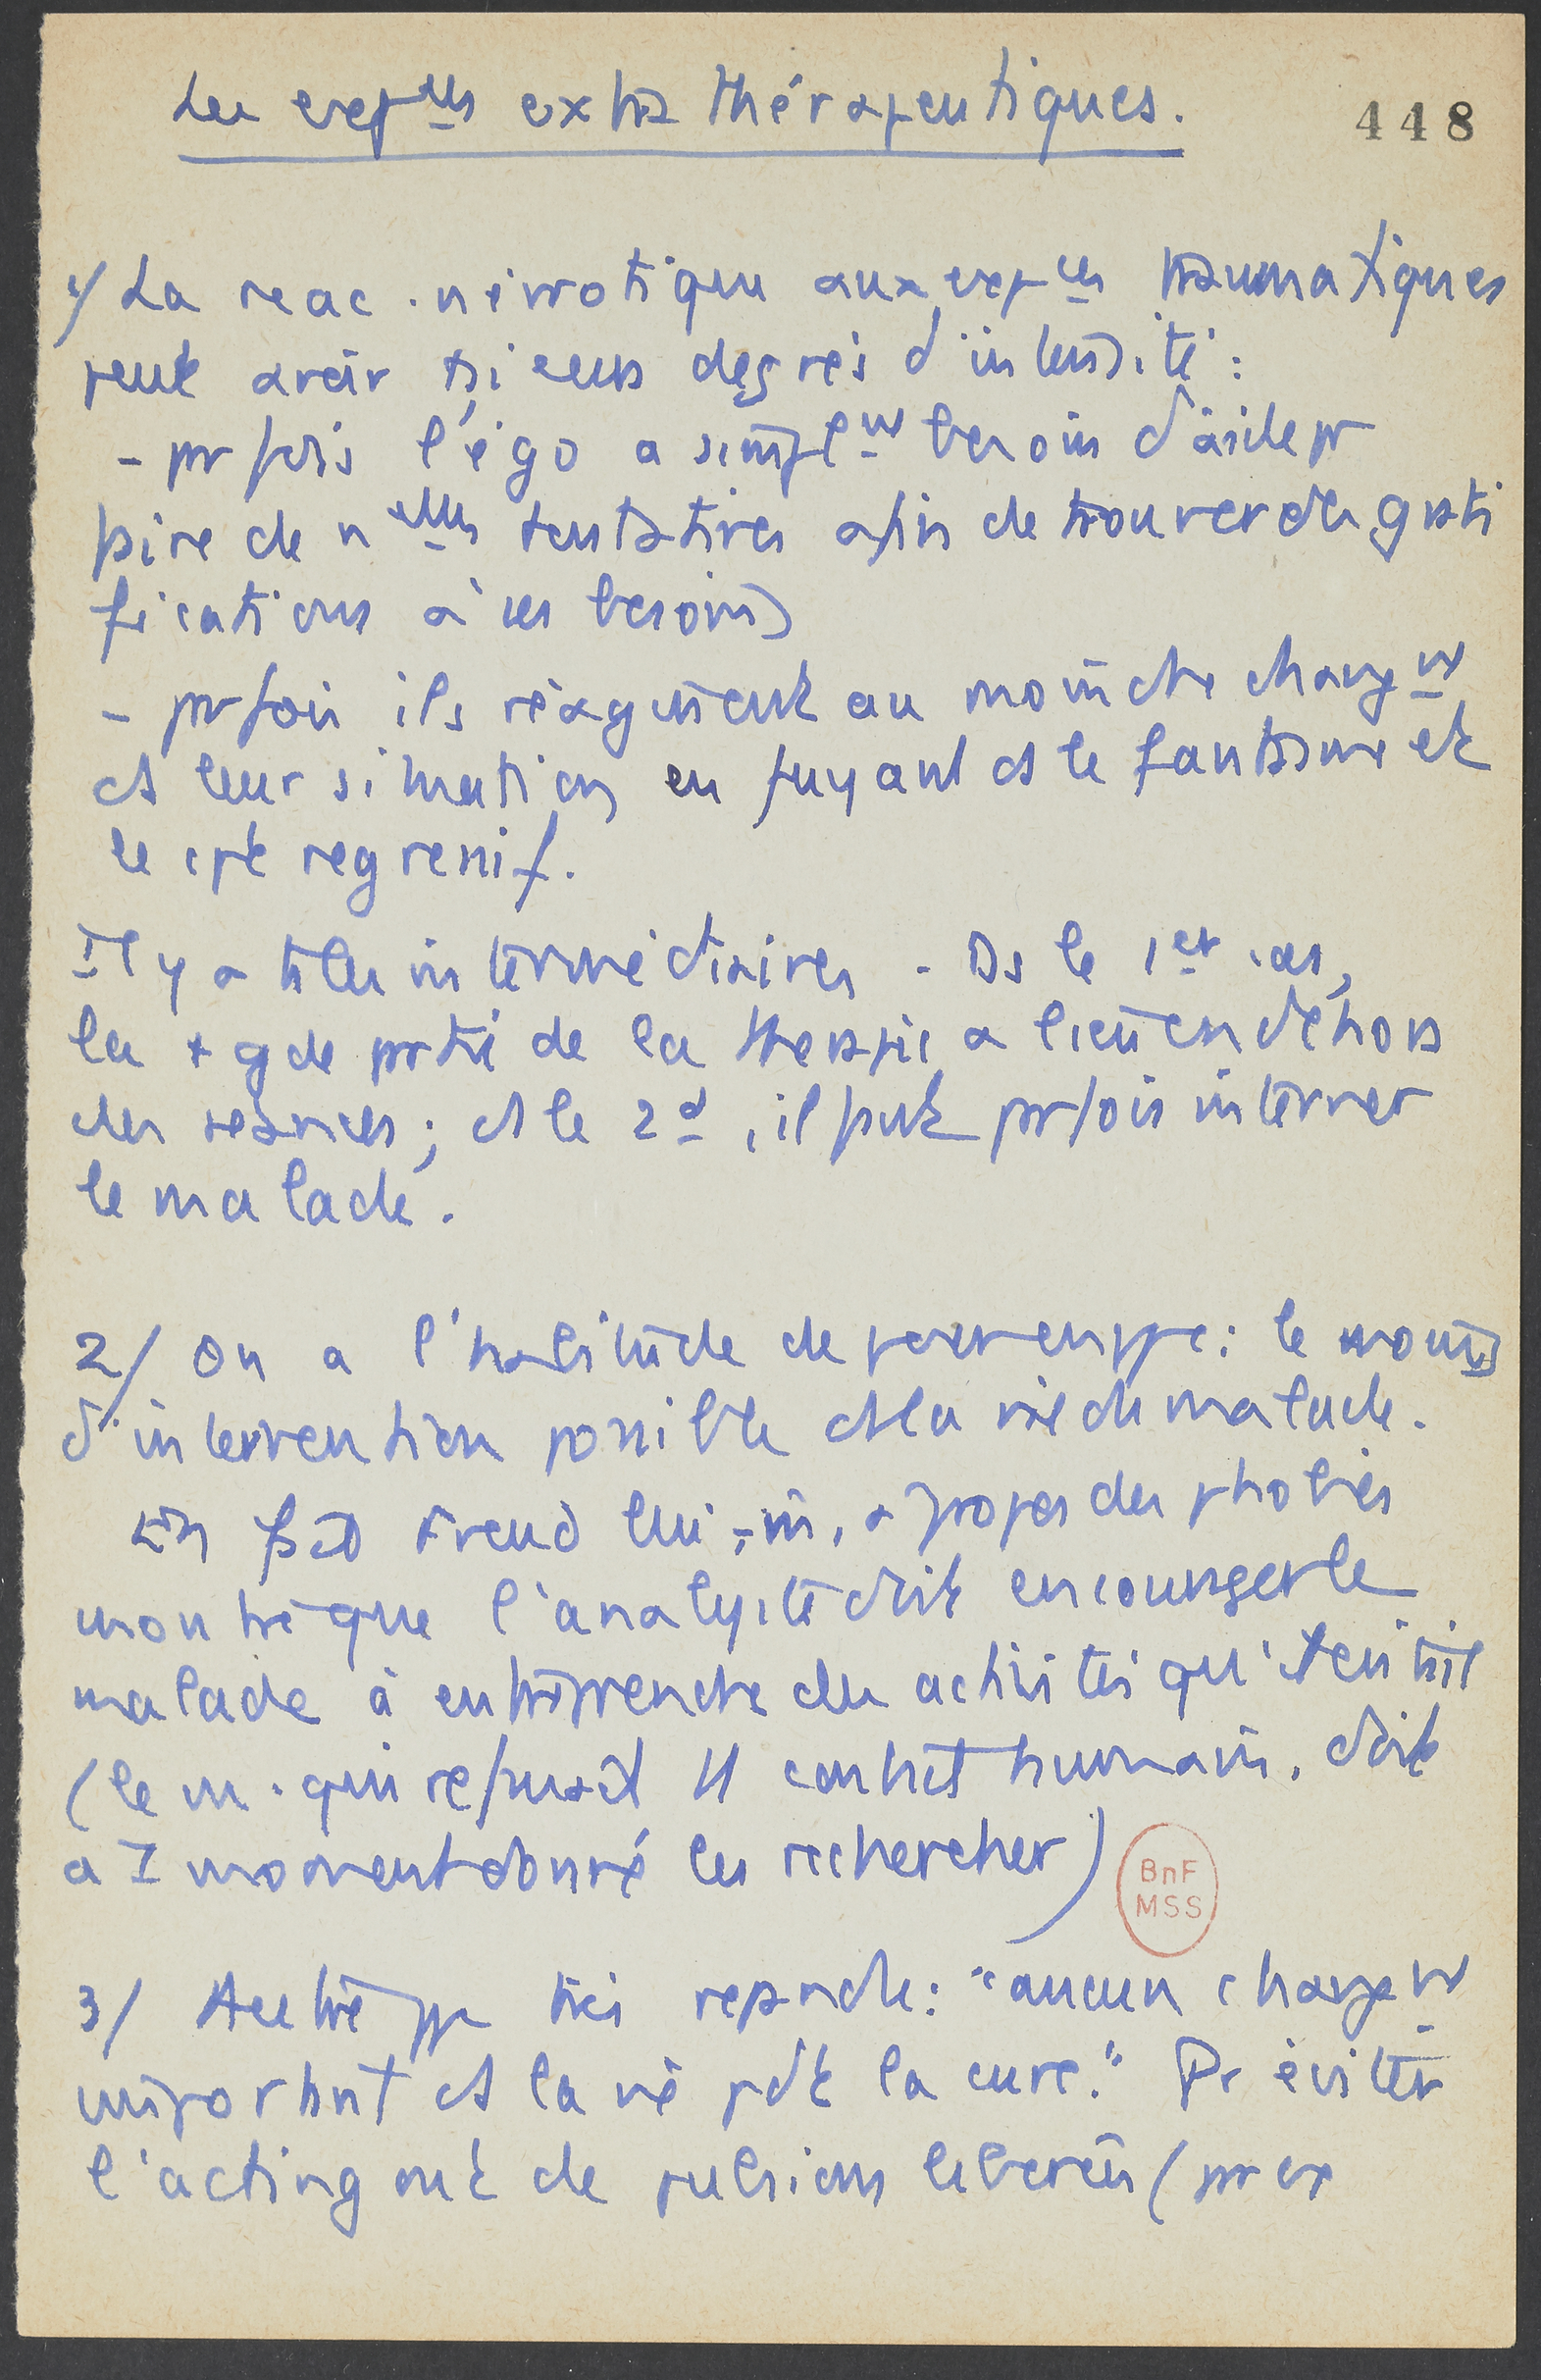 Les exp^ces extra thérapeutiques.
448
1/ La reac. névrotique aux exp^ces traumatiques
peut avoir plsieurs degrés d'intensité :
- parfois l'ego a simpl^nt besoin d'aide pr
faire de n^elles tentatives afin de trouver des grati
fications à ses besoins
- parfois ils réagissent au moindre change^nt
ds leur situation en fuyant ds le fantasme et
le cpt regressif.
Il y a ts les intermédiaires. Ds le 1er cas,
la + gde partie de la thérapie a lieu en dehors
des séances ; ds le 2d, il faut parfois interner
le malade.
2/ On a l'habitude de poser en ppe : le moins
d'intervention possible ds la vie du malade.
En fait Freud lui-m, à propos des phobies
montre que l'analyste doit encourager le
malade à entreprendre des activités qu'évitait il
(le m. qui refusait tt contact humain, doit
à 1 moment donné les rechercher)
BnF
MSS
3/ Autre ppe très répandu : "aucun change^nt
important ds la vie pdt la cure." Pr éviter
l'acting out de pulsions libérées (par ex